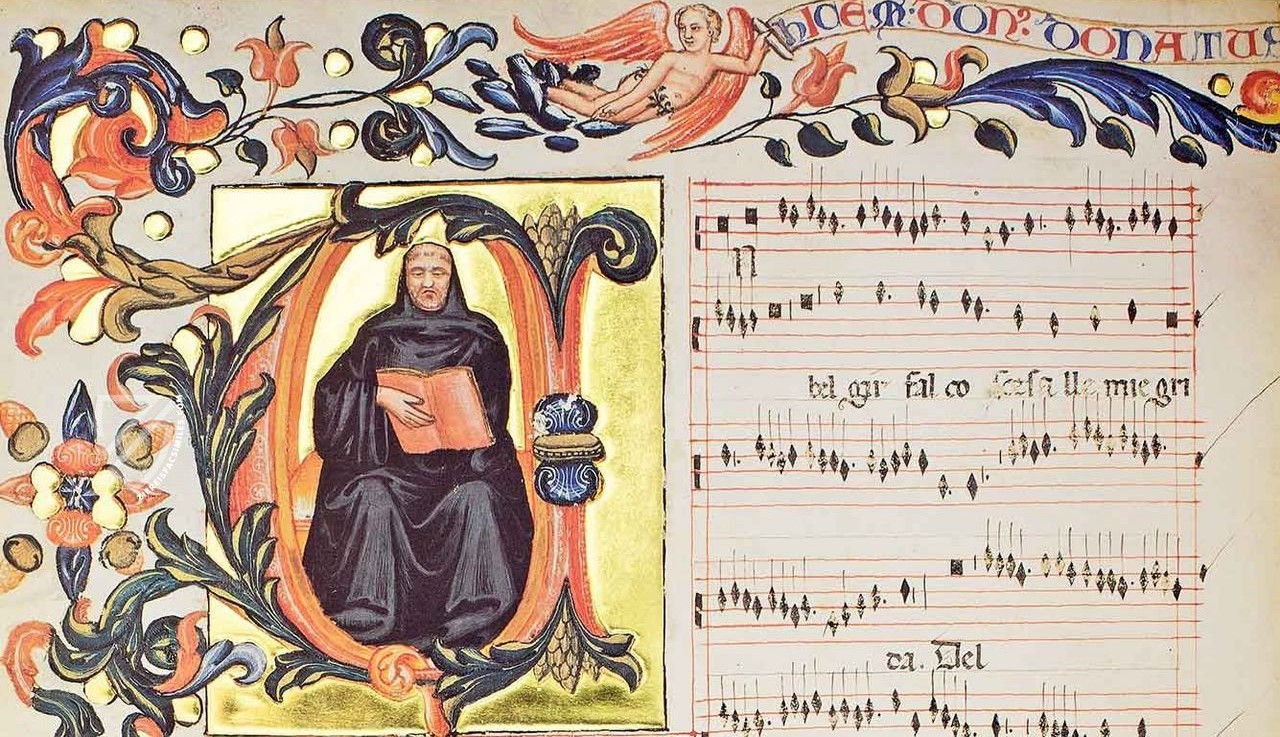 HICE·M·DON?·DONATUS
n
bel gir fal co scesa lle mie gri
da. Del